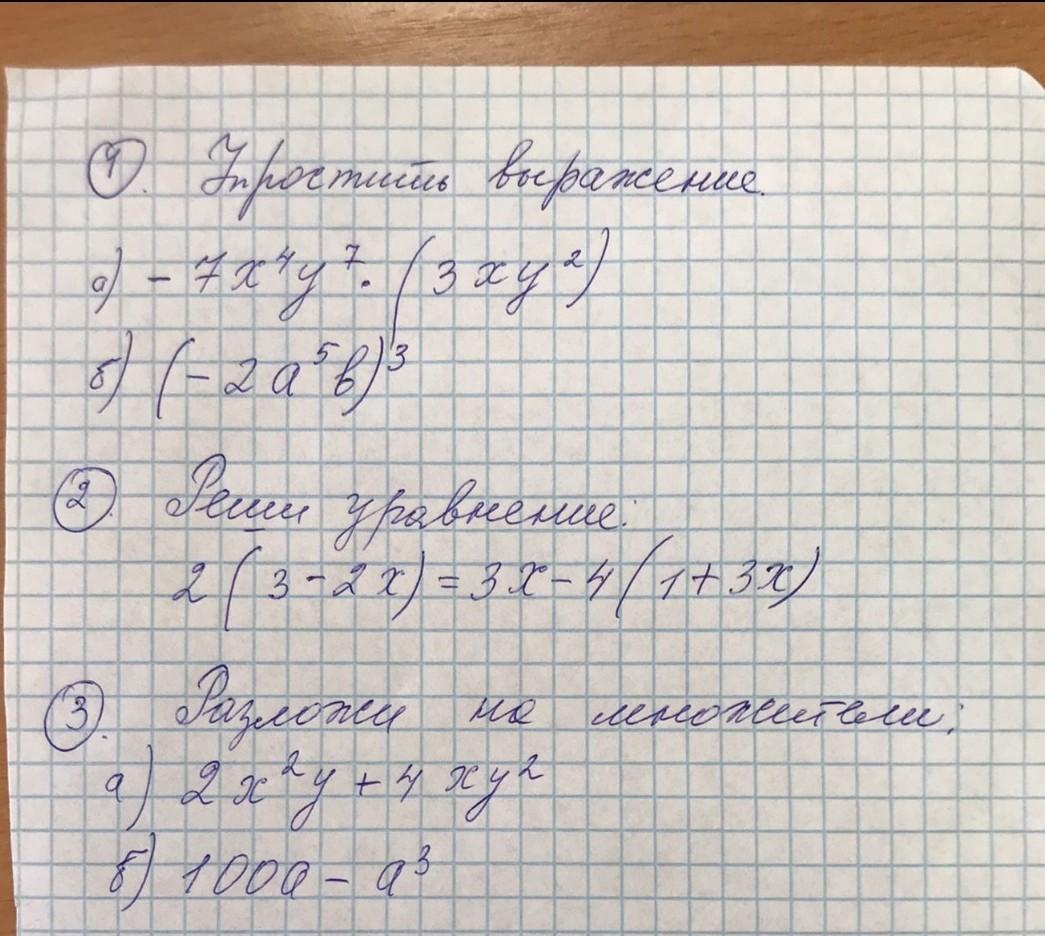 1. Упростить выражение.
а) - 7x⁴y⁷ · (3xy²)
б) (- 2a⁵b)³
2. Реши уравнение:
2(3 - 2x) = 3x - 4(1 + 3x)
3. Разложи на множители:
а) 2x²y + 4xy²
б) 100a - a³